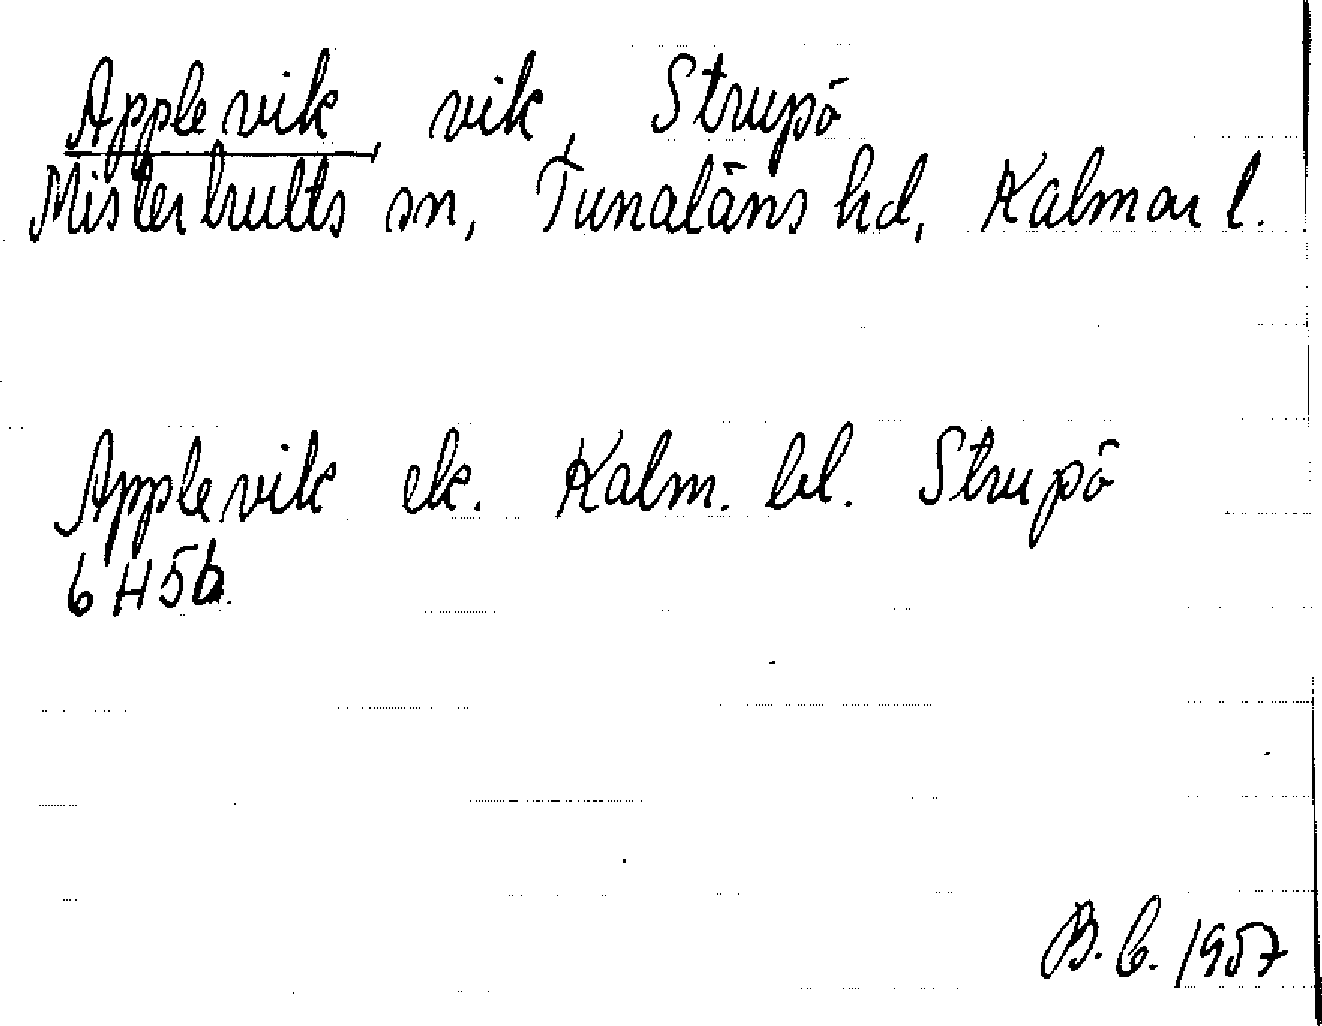 Applevik, vik, Strupö
Misterhults sn, Tunaläns hd, Kalmar l.
Applevik ek. Kalm. bl. Strupö
6 H5b.
B. C. 1957